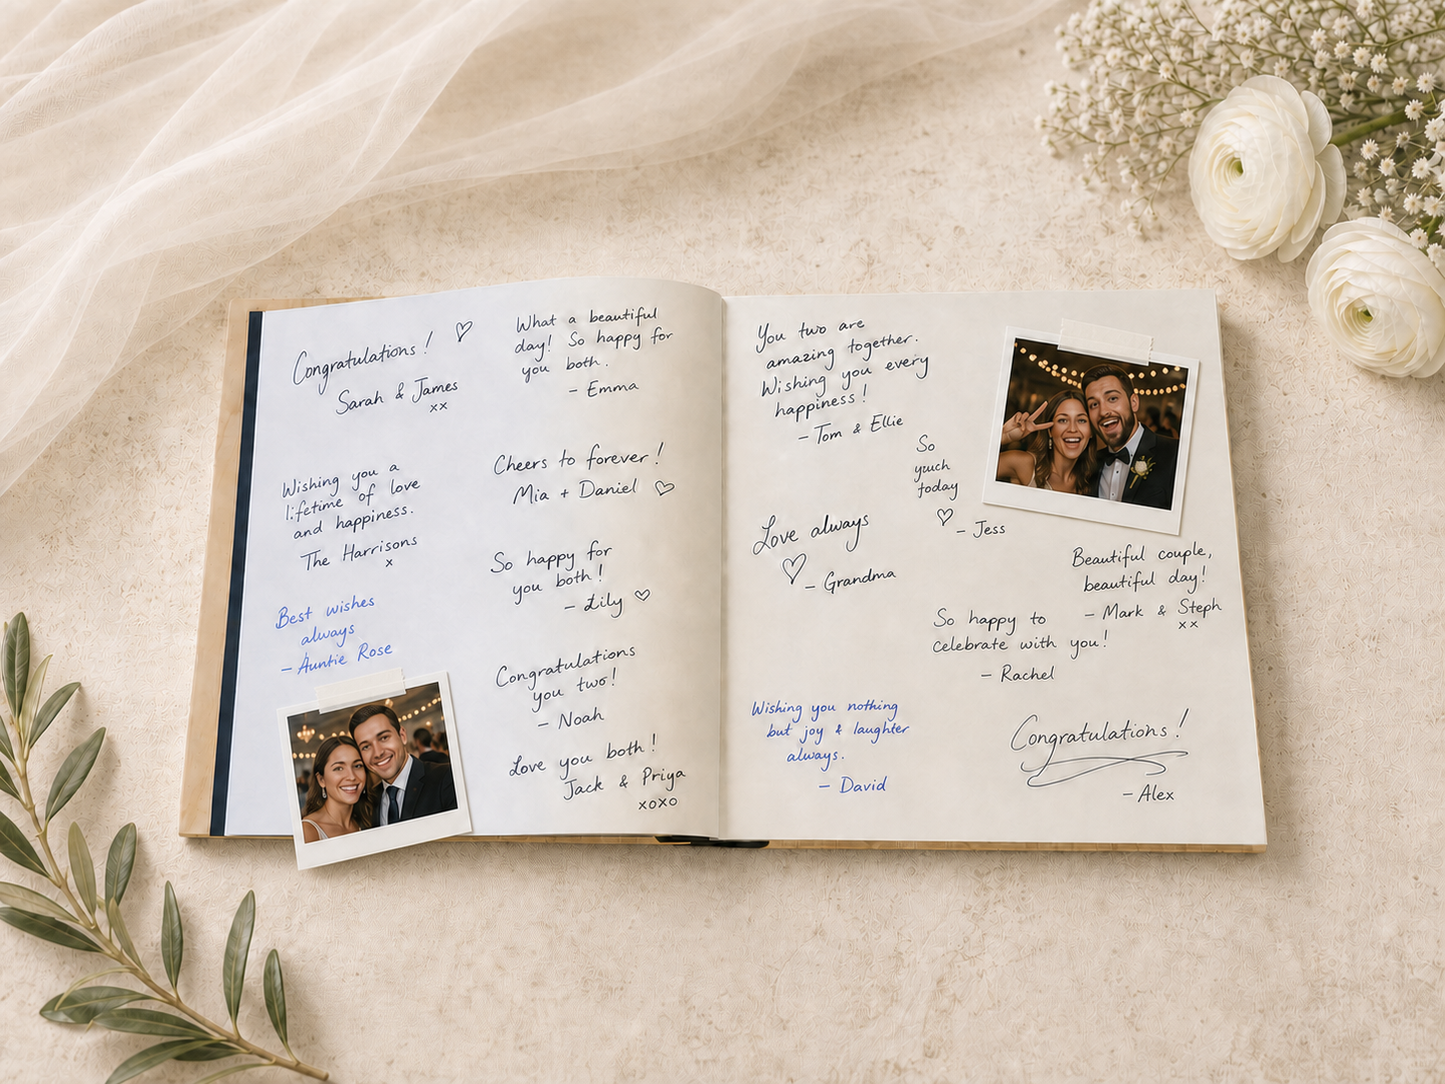 Congratulations!
Sarah & James
xx
Wishing you a
lifetime of love
and happiness.
The Harrisons
x
Best wishes
always
– Auntie Rose
What a beautiful
day! So happy for
you both.
– Emma
Cheers to forever!
Mia + Daniel
So happy for
you both!
– Lily
Congratulations
you two!
– Noah
Love you both!
Jack & Priya
xoxo
You two are
amazing together.
Wishing you every
happiness!
– Tom & Ellie
So
today
– Jess
Love always
– Grandma
Beautiful couple,
beautiful day!
– Mark & Steph
xx
So happy to
celebrate with you!
– Rachel
Wishing you nothing
but joy & laughter
always.
– David
Congratulations!
– Alex